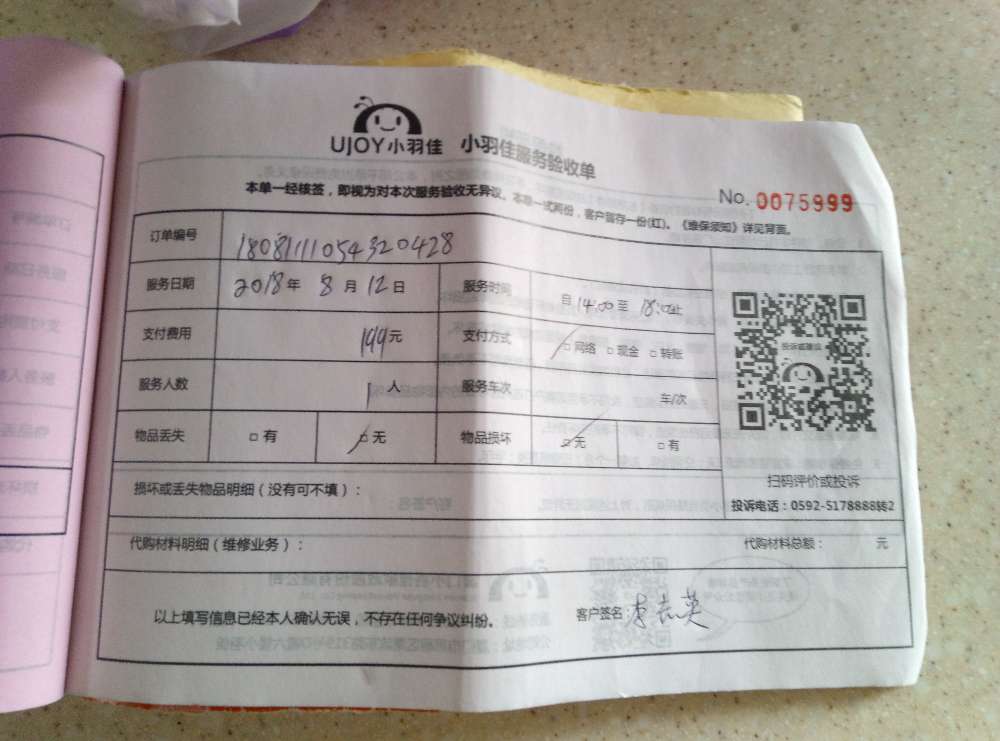 UJOY小羽佳 小羽佳服务验收单
本单一经核签，即视为对本次服务验收无异议。本单一式两份，客户留存一份(红)。《维保须知》详见背面。
No. 0075999
订单编号 18081111054320428
服务日期 2018年 8月12日 服务时间 自14:00至 18:00止
支付费用 199元 支付方式 □网络 □现金 □转账
投诉或建议
服务人数 1人 服务车次 车/次
物品丢失 □有 □无 物品损坏 □无 □有
扫码评价或投诉
损坏或丢失物品明细（没有可不填）：
投诉电话：0592-5178888转2
代购材料明细（维修业务）： 代购材料总额： 元
以上填写信息已经本人确认无误，不存在任何争议纠纷。 客户签名：李志英